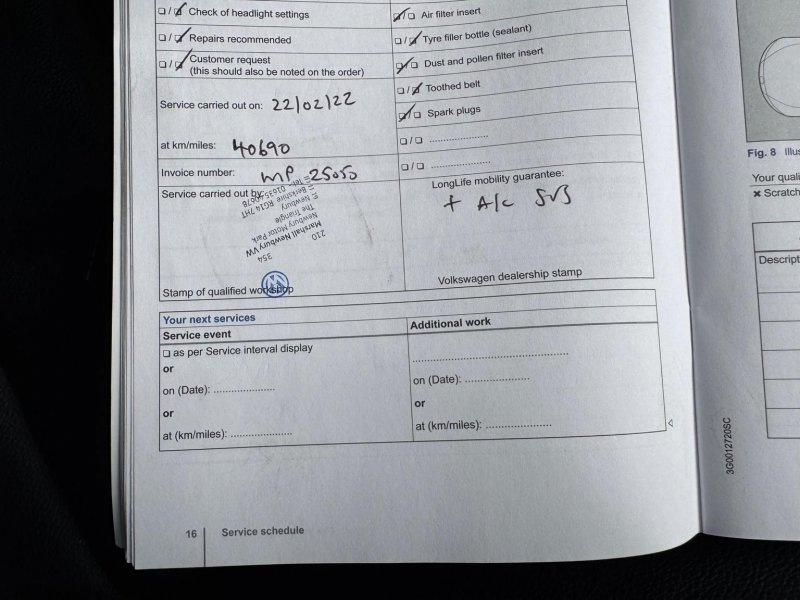 ☐/☑ Check of headlight settings
☐/☑ Repairs recommended
☐/☑ Customer request
(this should also be noted on the order)
Service carried out on: 22/02/22
at km/miles: 40690
Invoice number: MP 25050
Service carried out by:
Stamp of qualified workshop
210 354
Marshall Newbury VW
Newbury Motor Park
The Triangle
Newbury
Berkshire RG14 7HT
☑/☐ Air filter insert
☐/☑ Tyre filler bottle (sealant)
☑/☐ Dust and pollen filter insert
☐/☑ Toothed belt
☑/☐ Spark plugs
☐/☐ ......................
☐/☐ ......................
LongLife mobility guarantee:
+ A/C SVS
Volkswagen dealership stamp
Your next services
Service event
☐ as per Service interval display
or
on (Date): ......................
or
at (km/miles): ......................
Additional work
......................................................
on (Date): ......................
or
at (km/miles): ......................
16 Service schedule
3G0012720SC
Fig. 8
Your
✖ Scratch